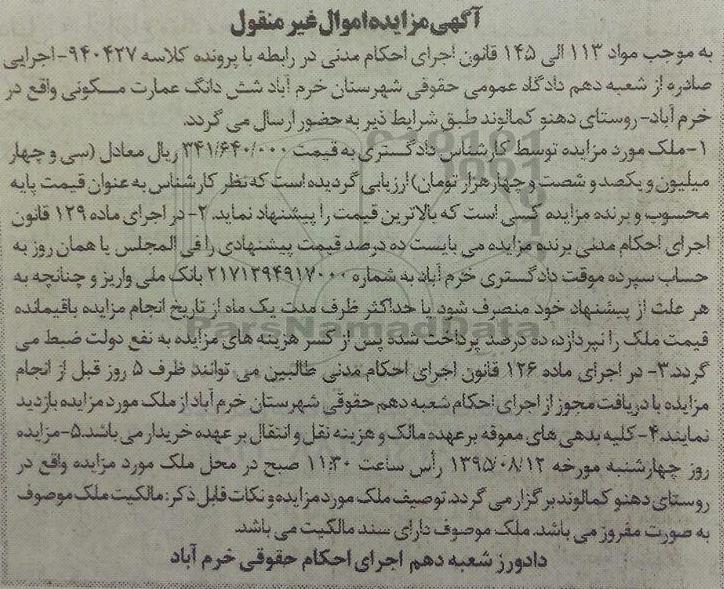 آگهی مزایده اموال غیر منقول
به موجب مواد ۱۱۳ الی ۱۴۵ قانون اجرای احکام مدنی در رابطه با پرونده کلاسه ۹۴۰۴۲۷-اجرایی
صادره از شعبه دهم دادگاه عمومی حقوقی شهرستان خرم آباد شش دانگ عمارت مسکونی واقع در
خرم آباد- روستای دهنو کمالوند طبق شرایط ذیر به حضور ارسال می گردد.
۱-ملک مورد مزایده توسط کارشناس دادگستری به قیمت ۳۴۱/۶۴۰/۰۰۰ ریال معادل (سی و چهار
میلیون و یکصد و شصت و چهار هزار تومان) ارزیابی گردیده است که نظر کارشناس به عنوان قیمت پایه
محسوب و برنده مزایده کسی است که بالاترین قیمت را پیشنهاد نماید. ۲- در اجرای ماده ۱۲۹ قانون
اجرای احکام مدنی برنده مزایده می بایست ده درصد قیمت پیشنهادی را فی المجلس یا همان روز به
حساب سپرده موقت دادگستری خرم آباد به شماره ۲۱۷۱۳۹۴۹۱۷۰۰۰ بانک ملی واریز و چنانچه به
هر علت از پیشنهاد خود منصرف شود یا حداکثر ظرف مدت یک ماه از تاریخ انجام مزایده باقیمانده
قیمت ملک را نپردازد، ده درصد پرداخت شده پس از کسر هزینه های مزایده به نفع دولت ضبط می
گردد.۳- در اجرای ماده ۱۲۶ قانون اجرای احکام مدنی طالبین می توانند ظرف ۵ روز قبل از انجام
مزایده با دریافت مجوز از اجرای احکام شعبه دهم حقوقی شهرستان خرم آباد از ملک مورد مزایده بازدید
نمایند.۴- کلیه بدهی های معوقه بر عهده مالک و هزینه نقل و انتقال بر عهده خریدار می باشد.۵-مزایده
روز چهارشنبه مورخه ۱۳۹۵/۰۸/۱۲ رأس ساعت ۱۱:۳۰ صبح در محل ملک مورد مزایده واقع در
روستای دهنو کمالوند برگزار می گردد. توصیف ملک مورد مزایده و نکات قابل ذکر: مالکیت ملک موصوف
به صورت مفروز می باشد. ملک موصوف دارای سند مالکیت می باشد.
دادورز شعبه دهم اجرای احکام حقوقی خرم آباد
ParsNamadData